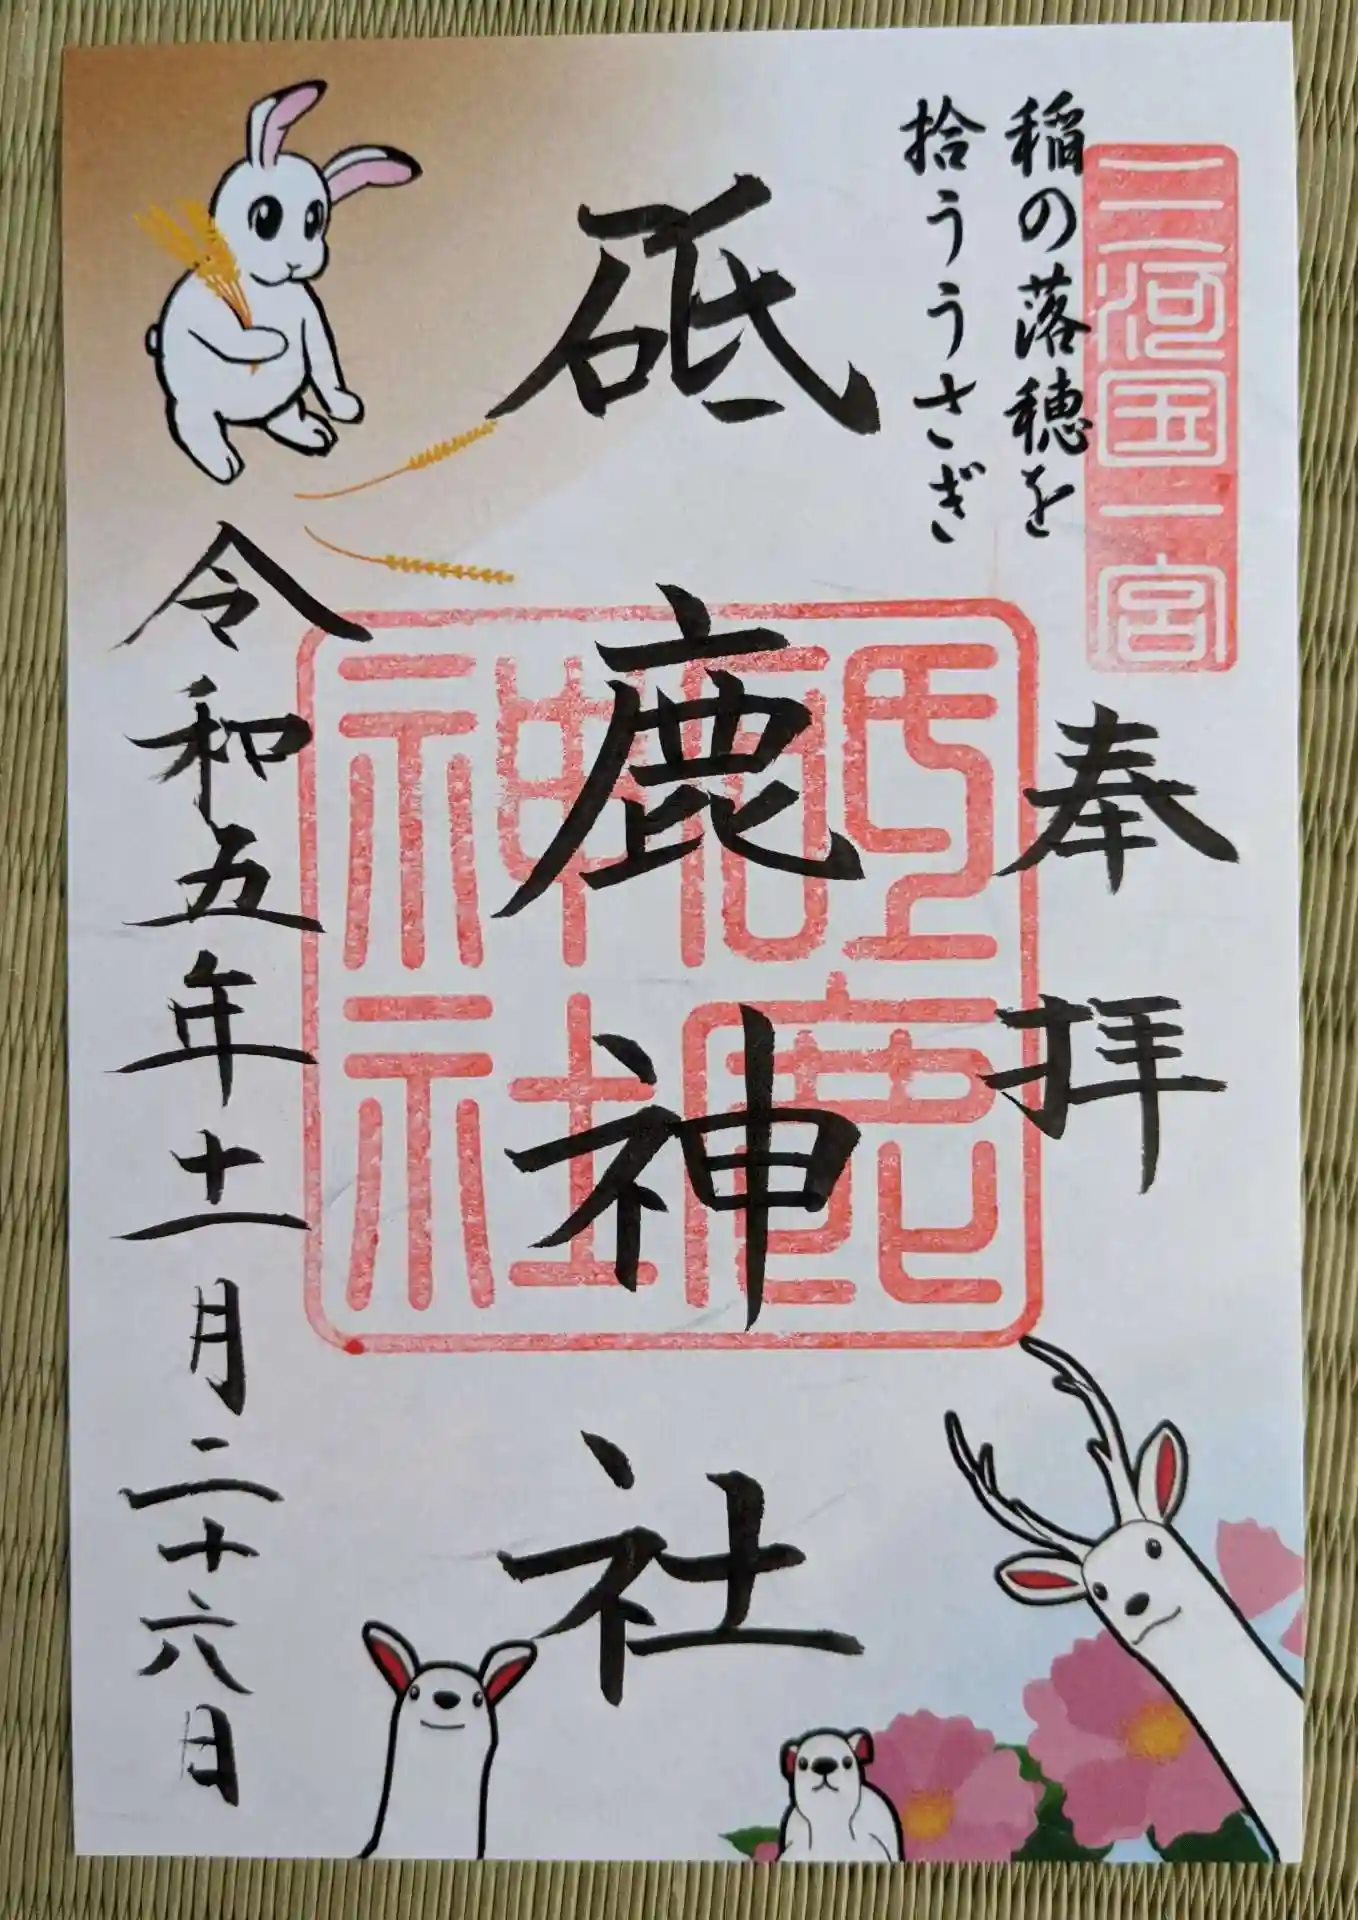 三河国一宮
稲の落穂を
拾ううさぎ
奉拝
砥鹿神社
砥鹿
神社
令和五年十一月二十六日